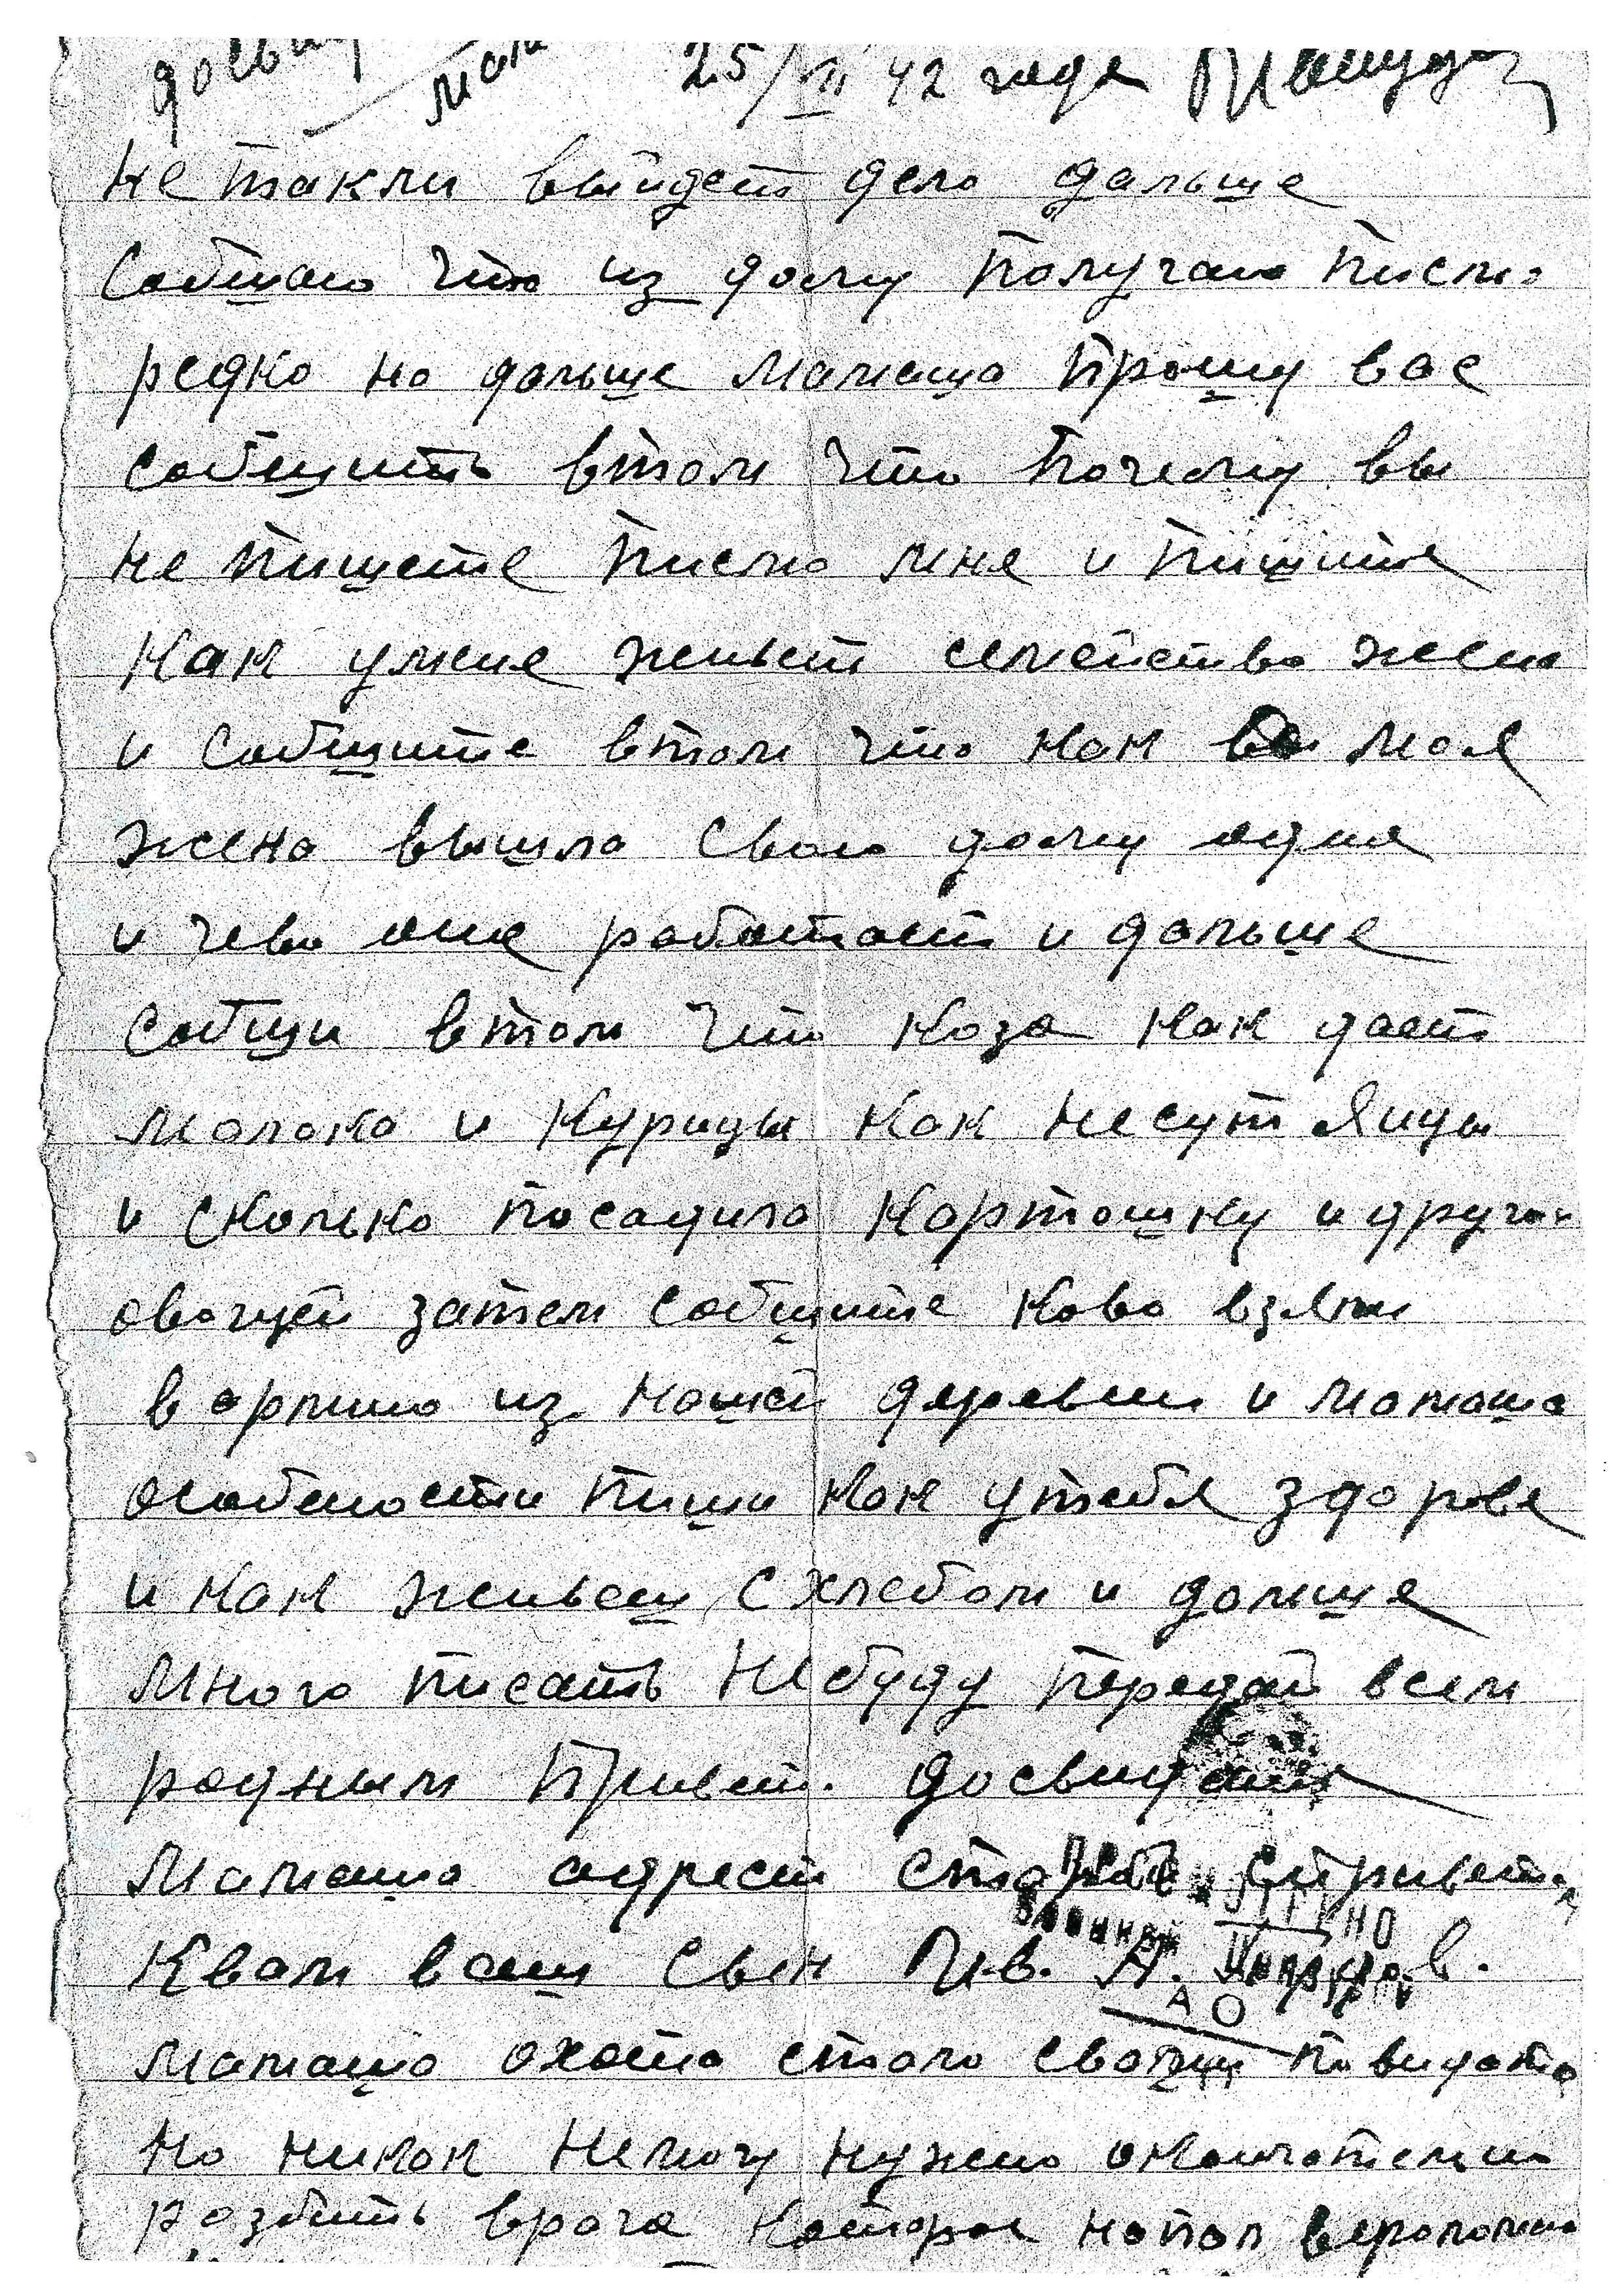 25/VI 42 года
не такли выйдет дело дальше
Собщаю что из дому получаю письмо
редко но дальше мамаша прошу вас
собщить втом что почему вы
не пишете письмо мне и пишите
как умне живет семейство жена
и собщите втом что как моя
жена вышла свою дому одна
и чево она работает и дальше
собщи втом что коза как дает
молоко и курицы как несут яицы
и сколько посадила картошку и других
овощей затем собщите ково взяли
в армию из нашей деревни и мамаша
особености пиши как утебя здоровя
и как живеш с хлебом и дальше
много писать небуду передай всем
родным привет. досвидания
Мамаша адрест старой сприветом
Квам ваш сын А.
мамаша охота стало свами повидать
но никак немогу нужно окончательно
розбить врага которое напал вероломно